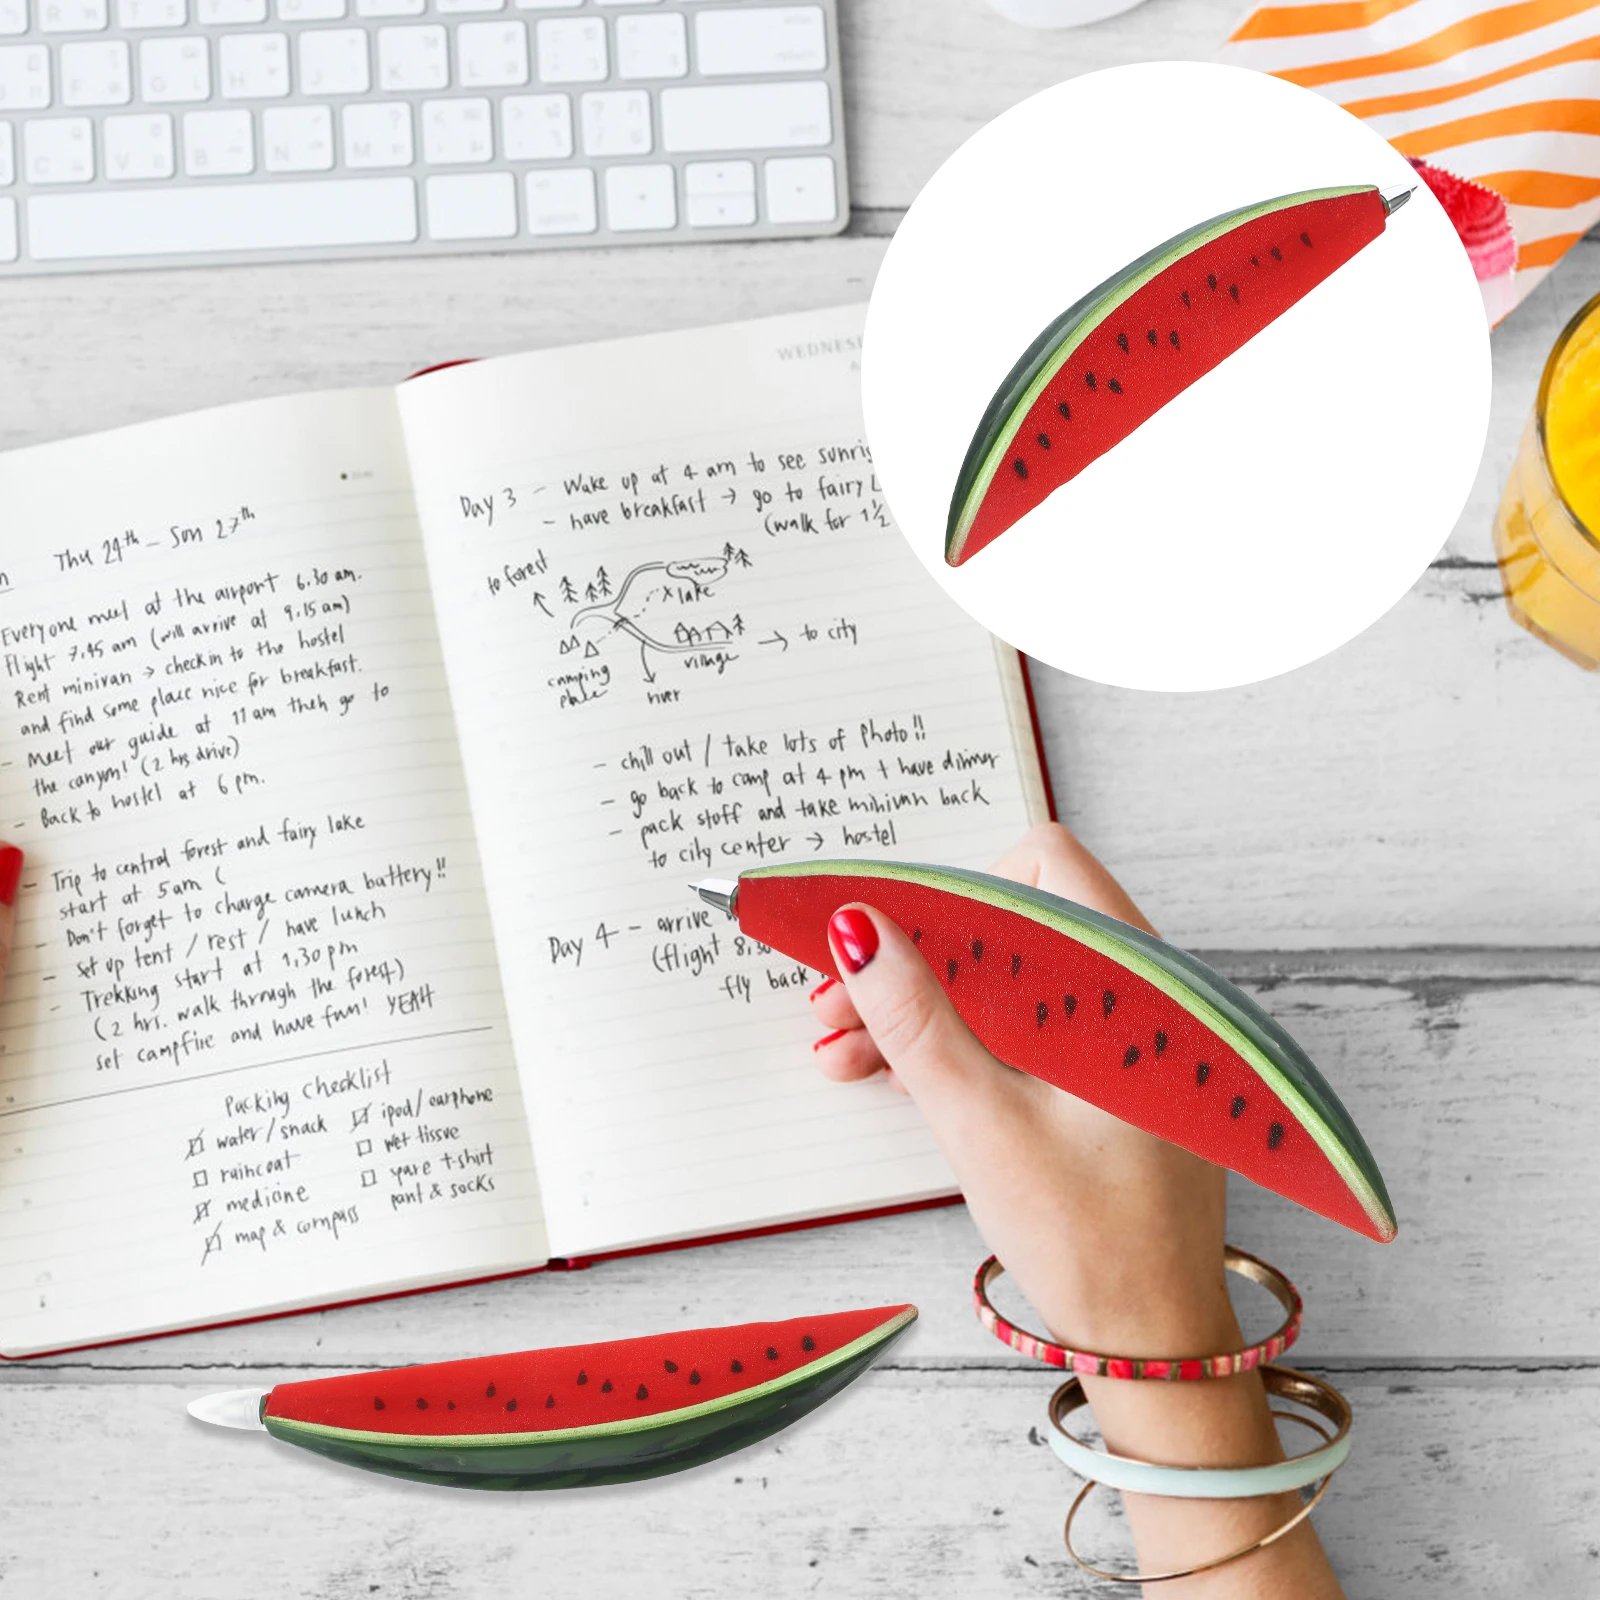 Thu 24th – Sun 27th
Everyone meet at the airport 6.30 am.
Flight 7.45 am (will arrive at 9.15 am)
Rent minivan → checkin to the hostel
and find some place nice for breakfast.
- Meet our guide at 11 am then go to
the canyon! (2 hrs drive)
- Back to hostel at 6 pm.
- Trip to central forest and fairy lake
start at 5am (
- Don't forget to charge camera battery!!
- set up tent / rest / have lunch
- Trekking start at 1.30 pm
(2 hrs. walk through the forest)
set campfire and have fun! YEAH
Packing checklist
water/snack
raincoat
medicine
map & compass
ipod/earphone
wet tissue
spare t-shirt
pant & socks
WEDNES
Day 3 - Wake up at 4 am to see sunris
- have breakfast → go to fairy L
(walk for 1½
to forest
lake
to city
village
camping
place
river
- chill out / take lots of photo!!
- go back to camp at 4 pm + have dinner
- pack stuff and take minivan back
to city center → hostel
Day 4 - arrive
(flight 8.30
fly back